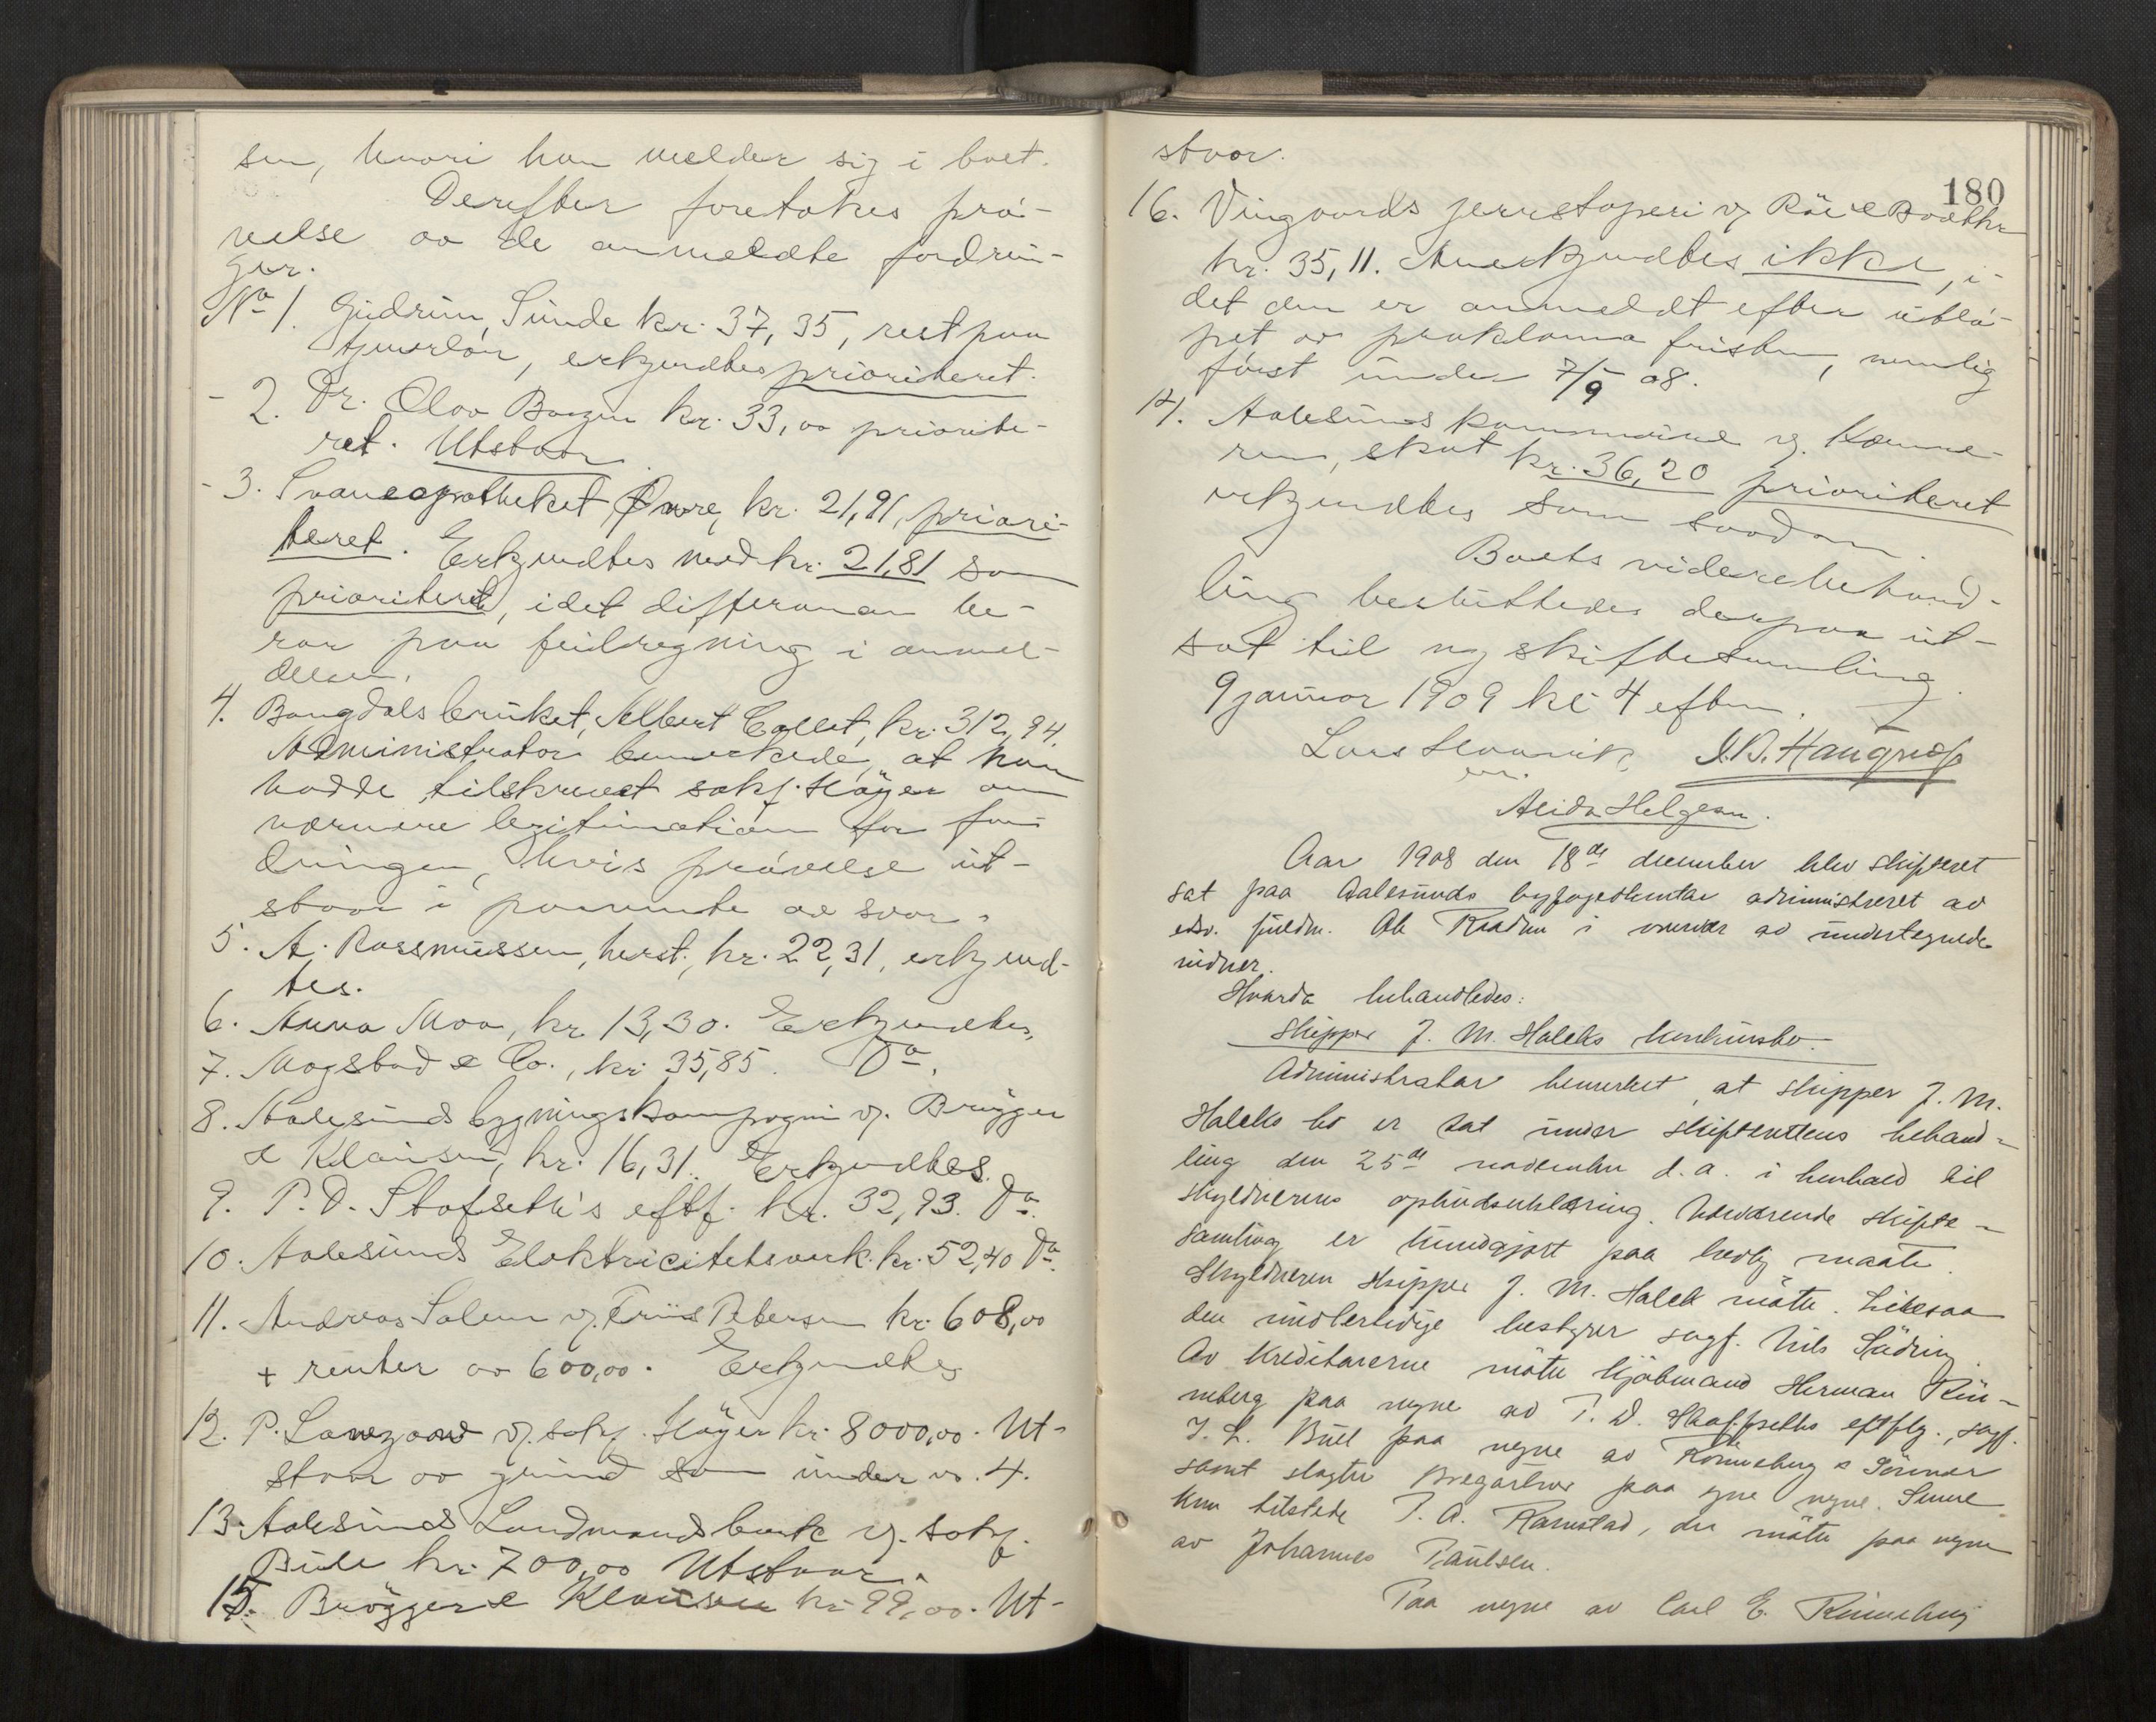 sen, hvori han melder sig i boet.
Derefter foretokes prø-
velse av de anmeldte fordrin-
ger.
No 1. Gudrun Sunde kr. 37,35, rest paa
tjenerløn, erkjendtes prioriteret.
- 2. Dr. Olav kr. 33,00 priorite-
ret. Utstaar.
- 3. Svaneapotheket, Øwre, kr. 21,91, priori-
teret. Erkjendtes med kr. 21,81 som
prioriteret, idet differansen be-
ror paa feilregning i anmel-
delsen.
4. Bangdalsbruket, Albert Collet, kr. 312,94.
Administrator bemerkede, at han
hadde tilskrevet sakf. Høyer om
nærmere legitimation for for-
dringen, hvis prøvelse ut-
staar i paavente av svar.
5. A. Rasmussen, herst., kr. 22,31, erkjend-
tes.
6. Anna Moa, kr. 13,30. Erkjendtes.
7. Mogstad & Co., kr. 35,85. Do.
8. Aalesunds bygningskompagni v. Brøgger
& Klausen, kr. 16,31. Erkjendtes.
9. P. D. Stafseth's eftf. kr. 32,93. Do.
10. Aalesunds Elektricitetsverk. kr. 52,40 Do.
11. Andreas Salen v. Friis Petersen kr. 608,00
+ renter av 600,00. Erkjendtes
12. P. v. sakf. Høyer kr. 8000,00. Ut-
staar av grund som under no. 4.
13. Aalesunds Landmandsbank v. sakf.
Bull kr. 700,00 Utstaar.
15. Brøgger & Klausen kr 99,00. Ut-
staar.
180
16. Vingaards jernstøperi v.
kr. 35,11. Anerkjendtes ikke, i-
det den er anmeldt efter utlø-
pet av proklama fristen, nemlig
først under 7/9 08.
17. Aalesunds kommune v. Kæmne-
ren, skat kr. 36,20 prioriteret
erkjendtes som saadan.
Boets viderebehand-
ling besluttedes derpaa ut-
sat til ny skiftesamling
9 januar 1909 kl 4 eftm.
Lars
Alida Helgesen.
Aar 1908 den 18de december blev skifteret
sat paa Aalesunds byfogedkontor administreret av
edsv. fuldm. Ole i overvær av undertegnede
vidner.
Hvorda behandledes:
Skipper J. M. Haleks konkursbo.
Administrator bemerket, at skipper J. M.
Haleks bo er tat under skifterettens behand-
ling den 25de november d. a. i henhold til
skyldnerens opbudserklæring. Nærværende skifte-
samling er kundgjort paa lovlig maate.
Skyldneren skipper J. M. Halek møtte. Likesaa
den midlertidige bestyrer sagf. Nils
Av kreditorerne møtte kjøbmand Herman Rön-
neberg paa vegne av P. D. Staffseths eftflg., sagf.
J. L. Bull paa vegne av Rönneberg & Sönner
samt slagter paa egne vegne. Senere
kom tilstede P. A. Ramstad, der møtte paa vegne
av Johannes Paulsen.
Paa vegne av Carl E. Rönneberg